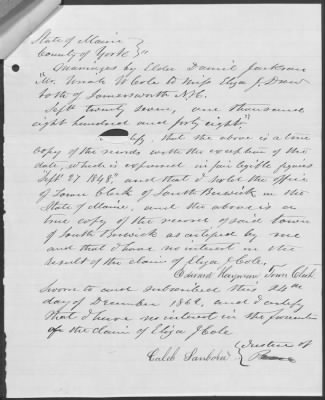 State of Maine
County of York
Marriages by Elder Daniel Jackson
"Mr. Uriah W Cole to Miss Eliza J. Drew
both of Somersworth N.H.
Sept twenty seven, one thousand
eight hundred and forty eight."
that the above is a true
copy of the records with the exception of the
date, which is expressed in fair legible figures
"Sept 27 1848," and that I hold the office
of Town Clerk of South Berwick in the
State of Maine, and the above is a
true copy of the record of said town
of South Berwick as certified by me
and that I have no interest in the
result of the claim of Eliza J Cole.
Edward Hayman Town Clerk
Sworn to and subscribed this 24th
day of December 1862, and I certify
that I have no interest in the
of the claim of Eliza J Cole
Caleb Sanborn Justice of
Peace